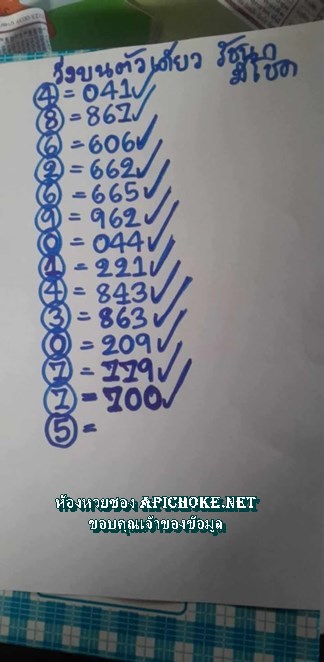 วิ่งบนตัวเดียว รัชนก
มีโชค
4 = 041✓
8 = 861✓
6 = 606✓
2 = 662✓
6 = 665✓
9 = 962✓
0 = 044✓
1 = 221✓
4 = 843✓
3 = 863✓
0 = 209✓
7 = 779✓
7 = 700✓
5 =
ห้องหวยซอง APICHOKE.NET
ขอบคุณเจ้าของข้อมูล